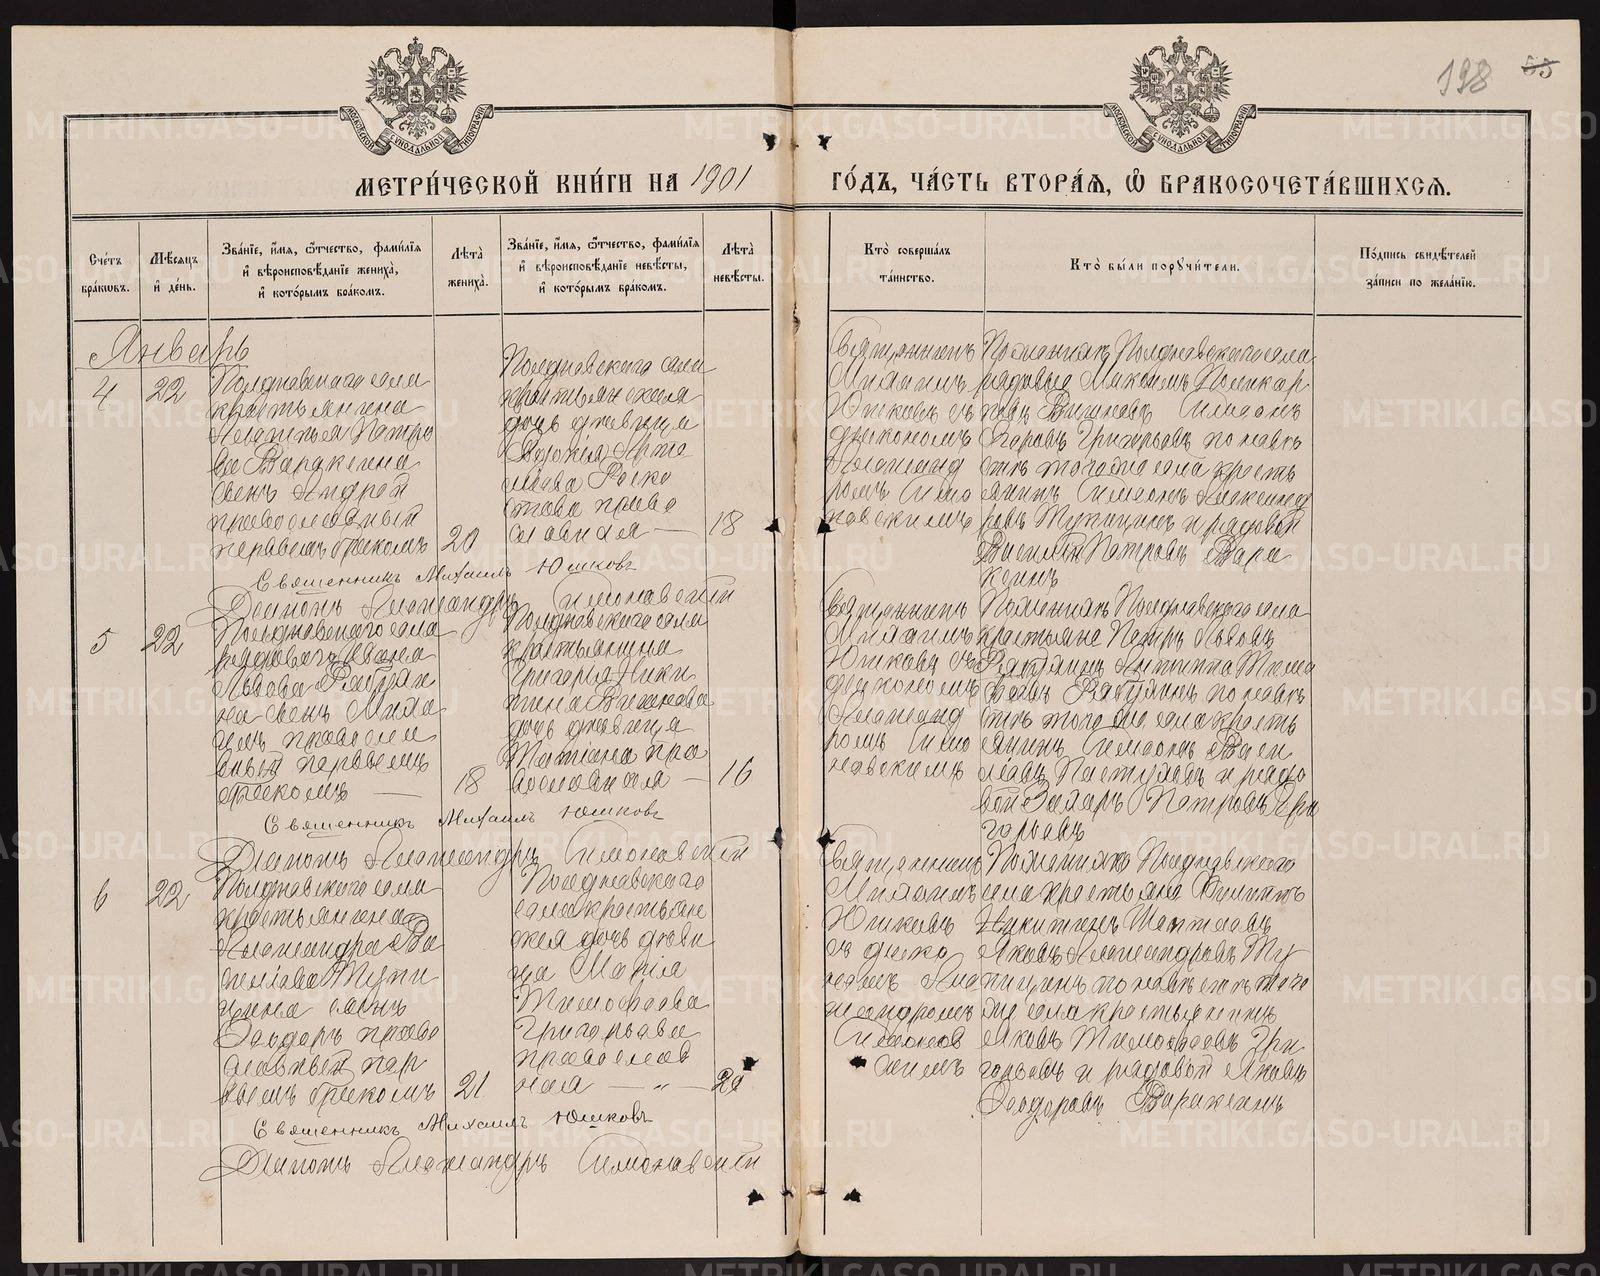 198 55
МОСКОВСКОЙ СѴНОДАЛЬНОЙ ТИПОГРАФІИ
МОСКОВСКОЙ СѴНОДАЛЬНОЙ ТИПОГРАФІИ
МЕТРИ́ЧЕСКОЙ КНИ́ГИ НА 1901 ГО́ДЪ, ЧА́СТЬ ВТОРА́Ѧ, Ѡ҆ БРАКОСОЧЕТА́ВШИХСѦ.
Сче́тъ
бра́кѡвъ.
Мѣ́сѧцъ
и҆ де́нь.
Зва́нїе, и҆́мѧ, ѻ҆́тчество, фами́лїѧ
и҆ вѣроисповѣ́данїе жениха̀,
и҆ кото́рымъ бра́комъ.
Лѣ́та
жениха̀.
Зва́нїе, и҆́мѧ, ѻ҆́тчество, фами́лїѧ
и҆ вѣроисповѣ́данїе невѣ́сты,
и҆ кото́рымъ бра́комъ.
Лѣ́та
невѣ́сты.
Кто̀ соверша́лъ
та́инство.
Кто̀ бы́ли порꙋчи́тели.
По́дпись свидѣ́телей
за́писи по жела́нїю.
Январь
4
22
Полдневскаго села
крестьянина
Петро
ва Варакина
сынъ Андрей
православный
первымъ бракомъ
20
Полдневскаго села
крестьянская
дочь девица
Арте
мьева
това право
славная —
18
Священникъ
Михаилъ
Юшковъ съ
диакономъ
Александ
ромъ Симо
новскимъ
По женихѣ Полдневскаго села
рядовые Максимъ Поликар
повъ Симеонъ
Григорьевъ по невѣ
стѣ того же села кресть
янинъ Симеонъ Александ
ровъ Тупицинъ и рядовой
Василій Петровъ Вара
кинъ
Священникъ Михаилъ Юшковъ
Діаконъ Александръ Симоновскій
5
22
Полдневскаго села
рядового Ивана
Львова
на сынъ Миха
илъ православ
ный первымъ
бракомъ —
18
Полдневскаго села
крестьянина
Григорія Ники
тина
дочь девица
Татіана пра
вославная —
16
Священникъ
Михаилъ
Юшковъ съ
диакономъ
Александ
ромъ Симо
новскимъ
По женихѣ Полдневскаго села
крестьяне Петръ Львовъ
Антипа Тимо
феевъ по невѣ
стѣ того же села кресть
янинъ Симеонъ Васи
льевъ Пастуховъ и рядо
вой Захаръ Петровъ Гри
горьевъ
Священникъ Михаилъ Юшковъ
Діаконъ Александръ Симоновскій
6
22
Полдневскаго села
крестьянина
Александра Ва
сильева Тупи
цина сынъ
Ѳеодоръ право
славный пер
вымъ бракомъ
21
Полдневскаго
села крестьян
ская дочь деви
ца Марія
Тимофеева
Григорьева
православ
ная — „ —
Священникъ
Михаилъ
Юшковъ
съ диако
номъ Алек
сандромъ
Симонов
скимъ
По женихѣ Полдневскаго
села крестьяне Филиппъ
Никитинъ
Яковъ Александровъ Ту
пицинъ по невѣстѣ того
же села крестьянинъ
Яковъ Тимофеевъ Гри
горьевъ и рядовой Яковъ
Ѳеодоровъ Варакинъ
Священникъ Михаилъ Юшковъ
Діаконъ Александръ Симоновскій
METRIKI.GASO-URAL.RU